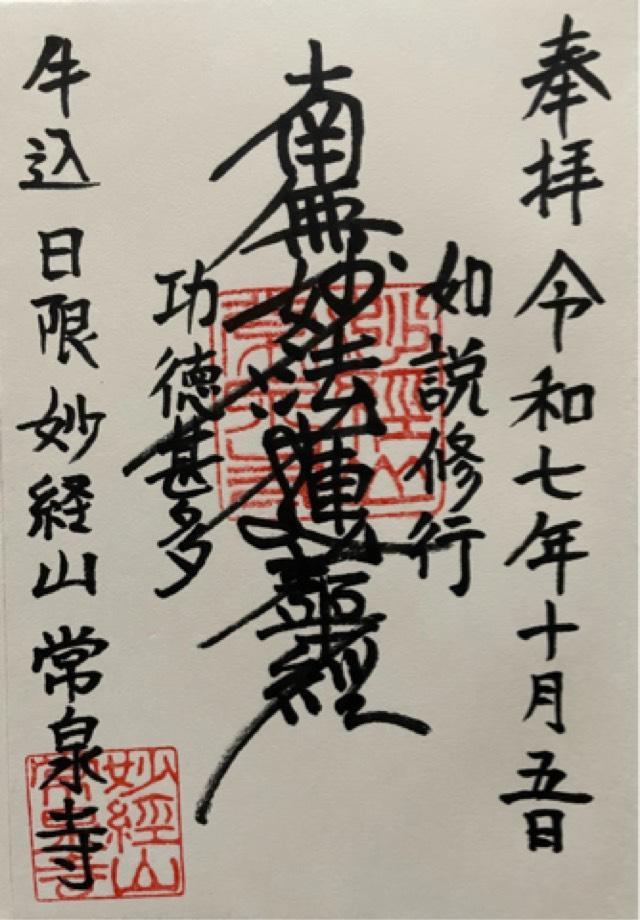 奉拝 令和七年十月五日
如説修行
南無妙法蓮華經
功徳甚多
牛込 日限 妙経山 常泉寺
妙經山
常泉寺
妙經山
常泉寺